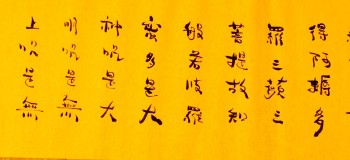 得阿耨多
羅三藐三
菩提故知
般若波羅
蜜多是大
神呪是大
明呪是無
上呪是無